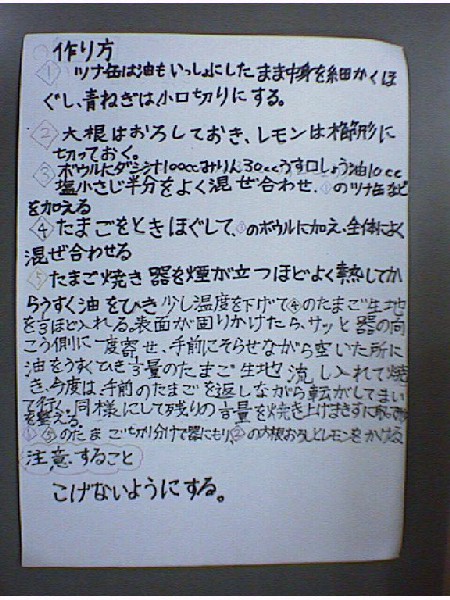 作り方
① ツナ缶は油もいっしょにしたまま中身を細かくほ
ぐし、青ねぎは小口切りにする。
② 大根はおろしておき、レモンは櫛形に
切っておく。
③ ボウルにダシ汁100ccみりん30ccうす口しょう油10cc
塩小さじ半分をよく混ぜ合わせ、①のツナ缶など
を加える
④ たまごをときほぐして、③のボウルに加え、全体によく
混ぜ合わせる
⑤ たまご焼き器を煙が立つほどよく熱してか
らうすく油をひき少し温度を下げて④のたまご生地
を1/3ほど入れる。表面が固りかけたら、サッと器の向
こう側に一度寄せ、手前にそらせながら空いた所に
油をうすくひき1/3量のたまご生地 流し入れて焼
き、今度は、手前のたまごを返しながら転がしてまい
て行く。同様にして残りの1/3量を焼き上げ
を整える。
⑤のたまご切り分けて器にもり、②の大根おろしとレモンをかける
注意すること
こげないようにする。